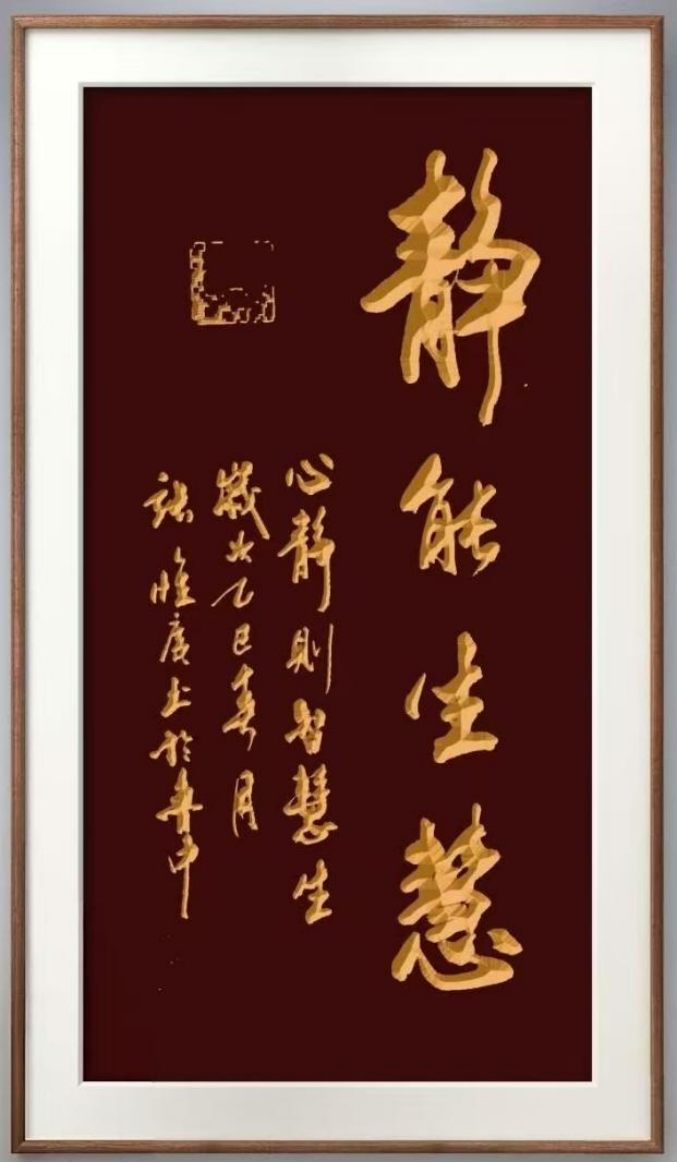 静能生慧
心静则智慧生
岁次乙巳春月
张惟广书于舟中